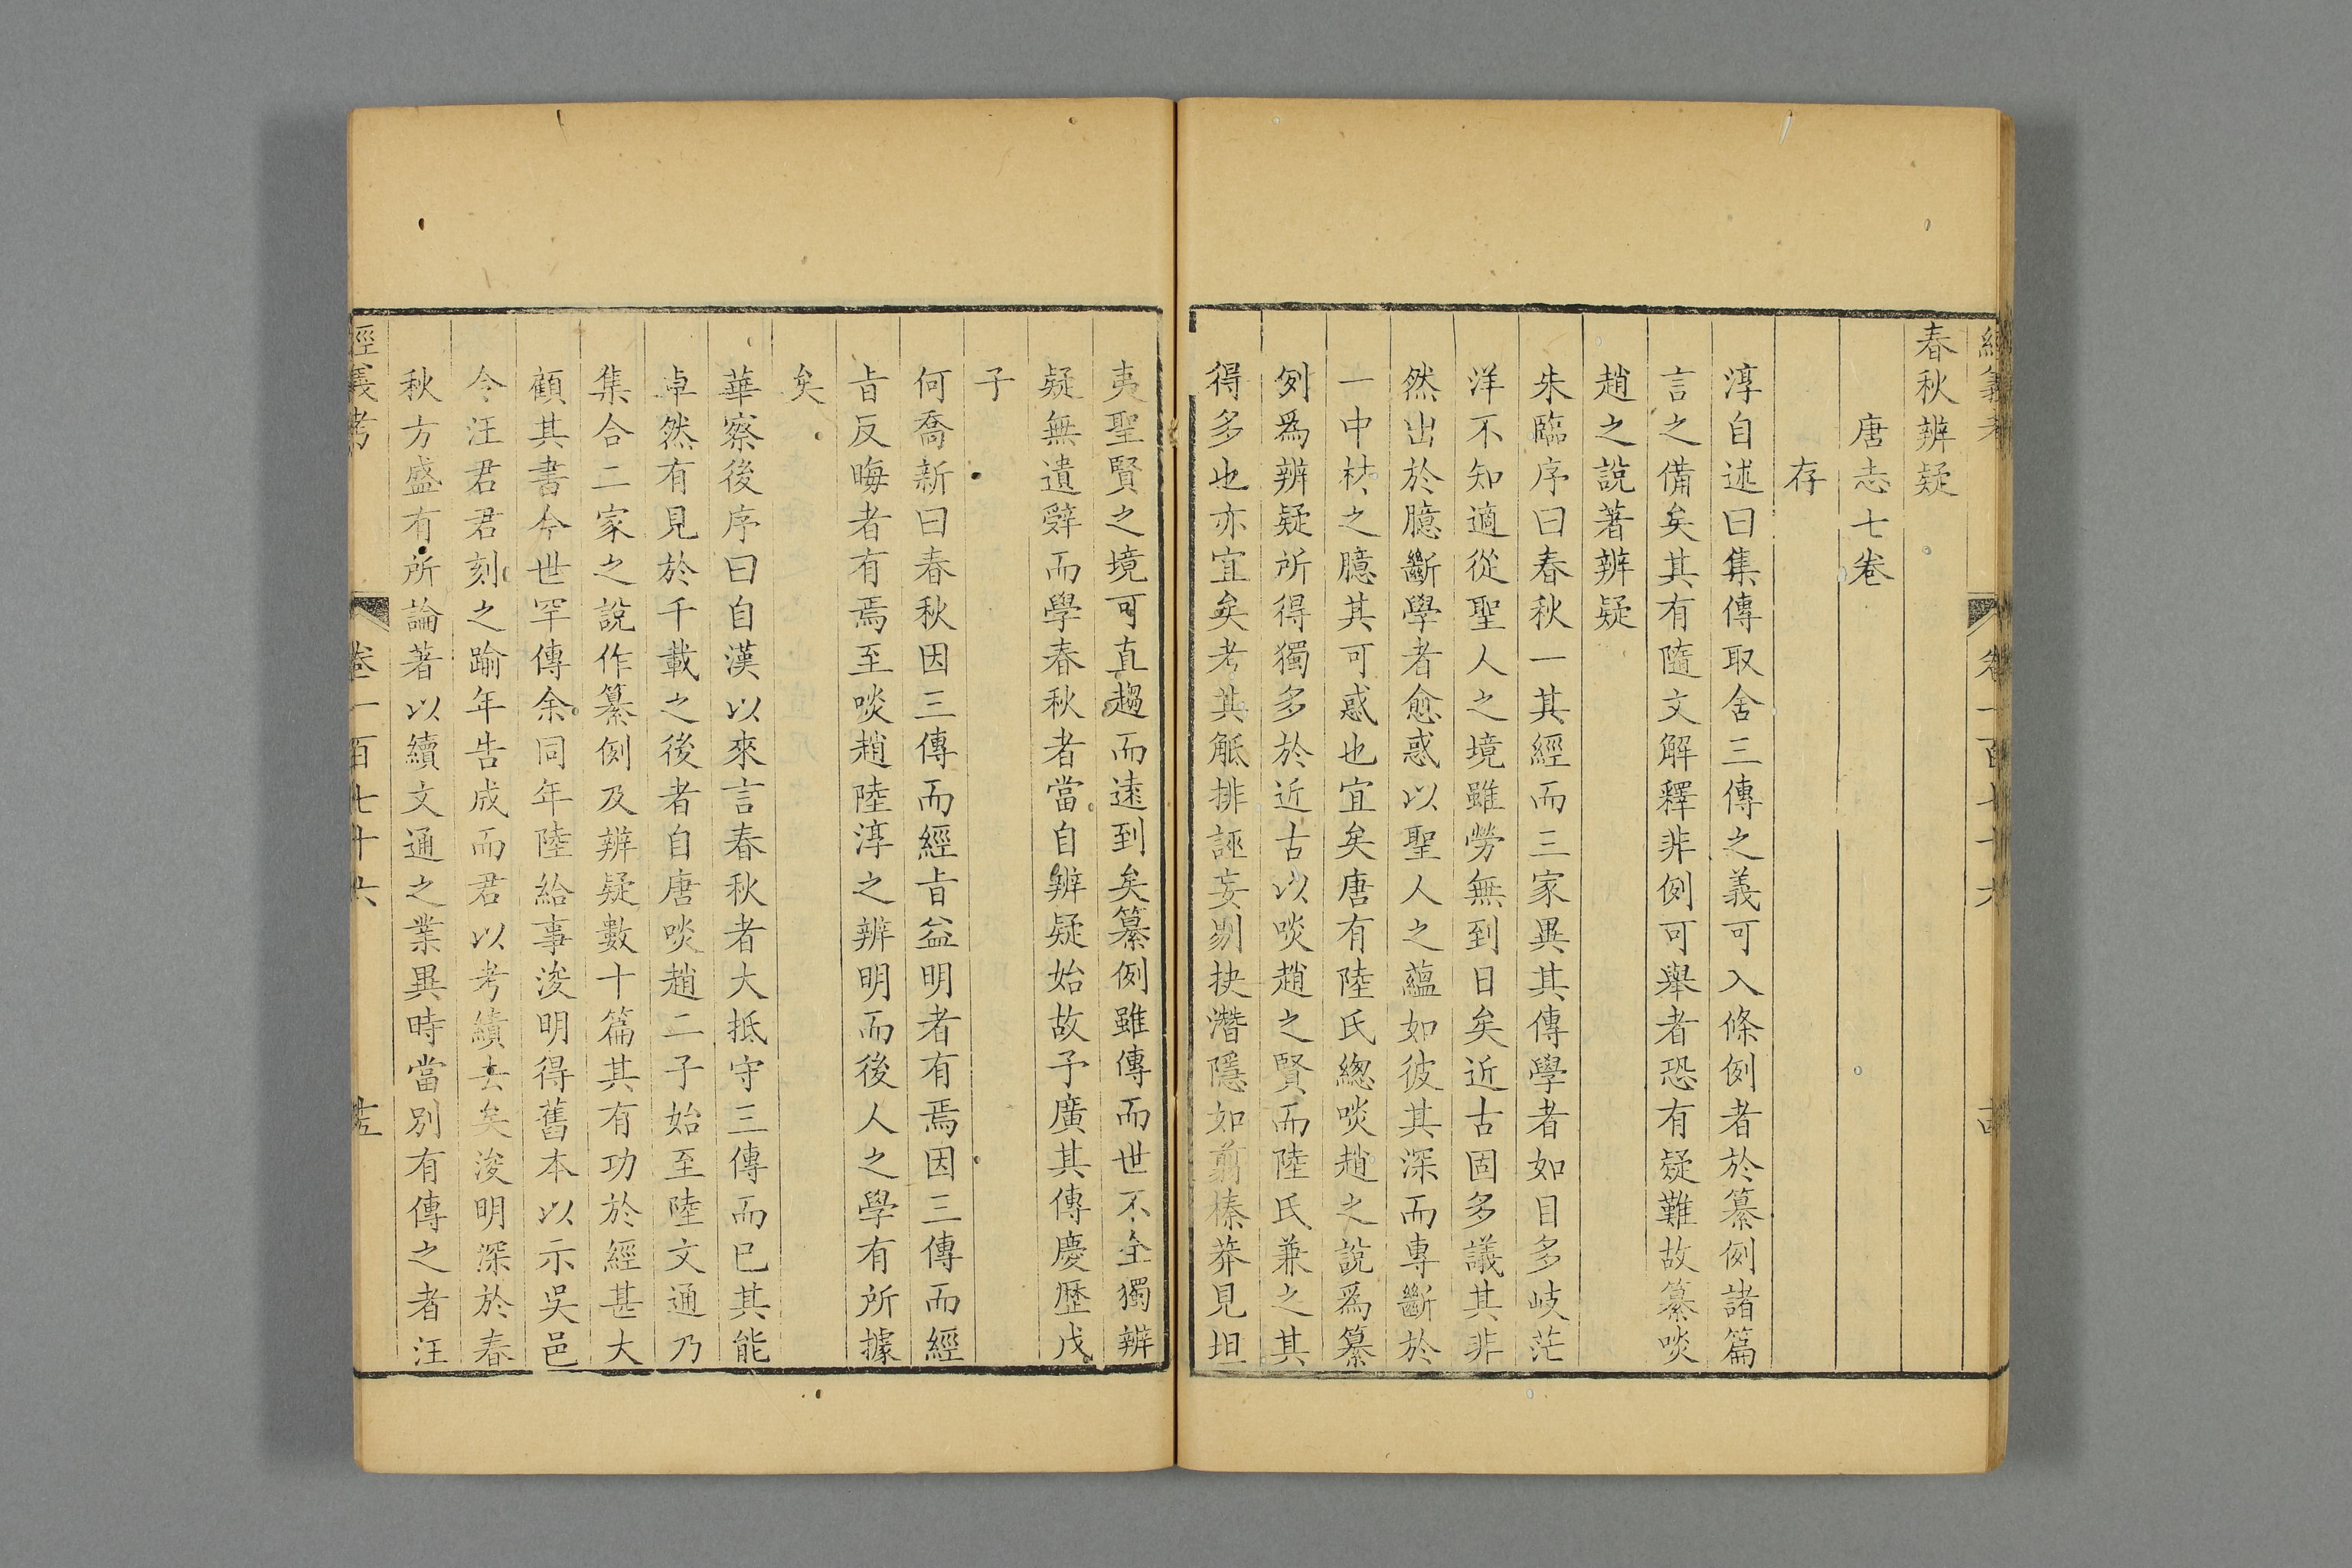 經義考 卷一百七十六 古
春秋辨疑
唐志七卷
存
淳自述曰集傳取舍三傳之義可入條例者於纂例諸篇
言之備矣其有隨文解釋非例可舉者恐有疑難故纂啖
趙之說著辨疑
朱臨序曰春秋一其經而三家異其傳學者如目多岐茫
洋不知適從聖人之境雖勞無到日矣近古固多議其非
然出於臆斷學者愈惑以聖人之蘊如彼其深而專斷於
一中材之臆其可惑也宜矣唐有陸氏緫啖趙之說爲纂
例爲辨疑所得獨多於近古以啖趙之賢而陸氏兼之其
得多也亦宜矣考其觝排誣妄剔抉潛隱如翦榛莽見坦
夷聖賢之境可直趨而遠到矣纂例雖傳而世不全獨辨
疑無遺辭而學春秋者當自辨疑始故予廣其傳慶歷戊
子
何喬新曰春秋因三傳而經旨益明者有焉因三傳而經
旨反晦者有焉至啖趙陸淳之辨明而後人之學有所據
矣
華察後序曰自漢以來言春秋者大抵守三傳而已其能
卓然有見於千載之後者自唐啖趙二子始至陸文通乃
集合二家之說作纂例及辨疑數十篇其有功於經甚大
顧其書今世罕傳余同年陸給事浚明得舊本以示吳邑
令汪君君刻之踰年告成而君以考績去矣浚明深於春
秋方盛有所論著以續文通之業異時當別有傳之者汪
經義考 卷一百七十六